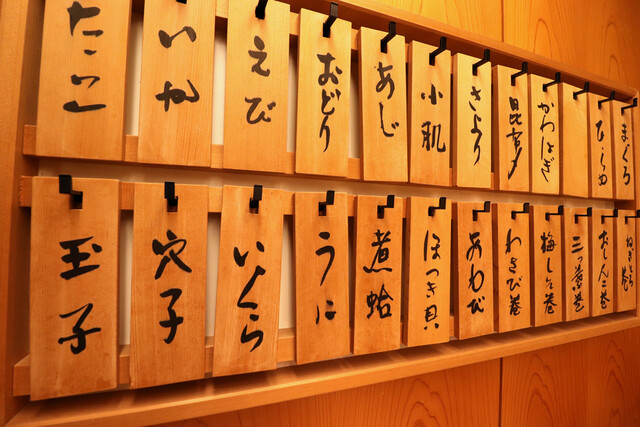 まぐろ
ひらめ
かわはぎ
さより
小肌
あじ
おどり
えび
いか
たこ
ねぎとろ巻
おしんこ巻
三つ葉巻
梅しそ巻
わさび巻
あわび
ほっき貝
煮蛤
うに
いくら
穴子
玉子